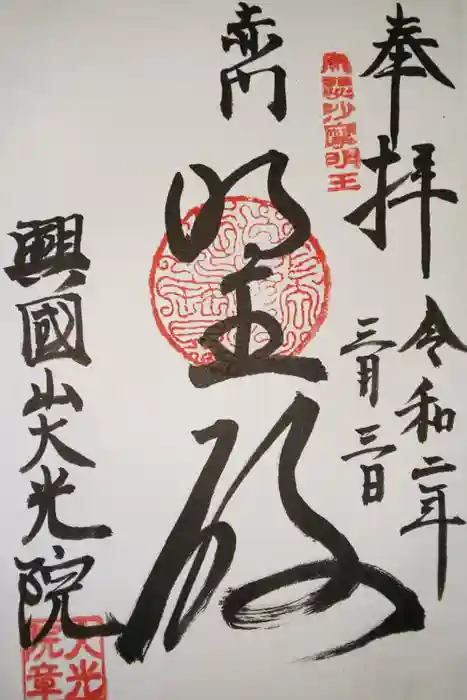 奉拝
令和二年
三月三日
烏芻沙摩明王
赤門
明王殿
興國山大光院
大光
院章